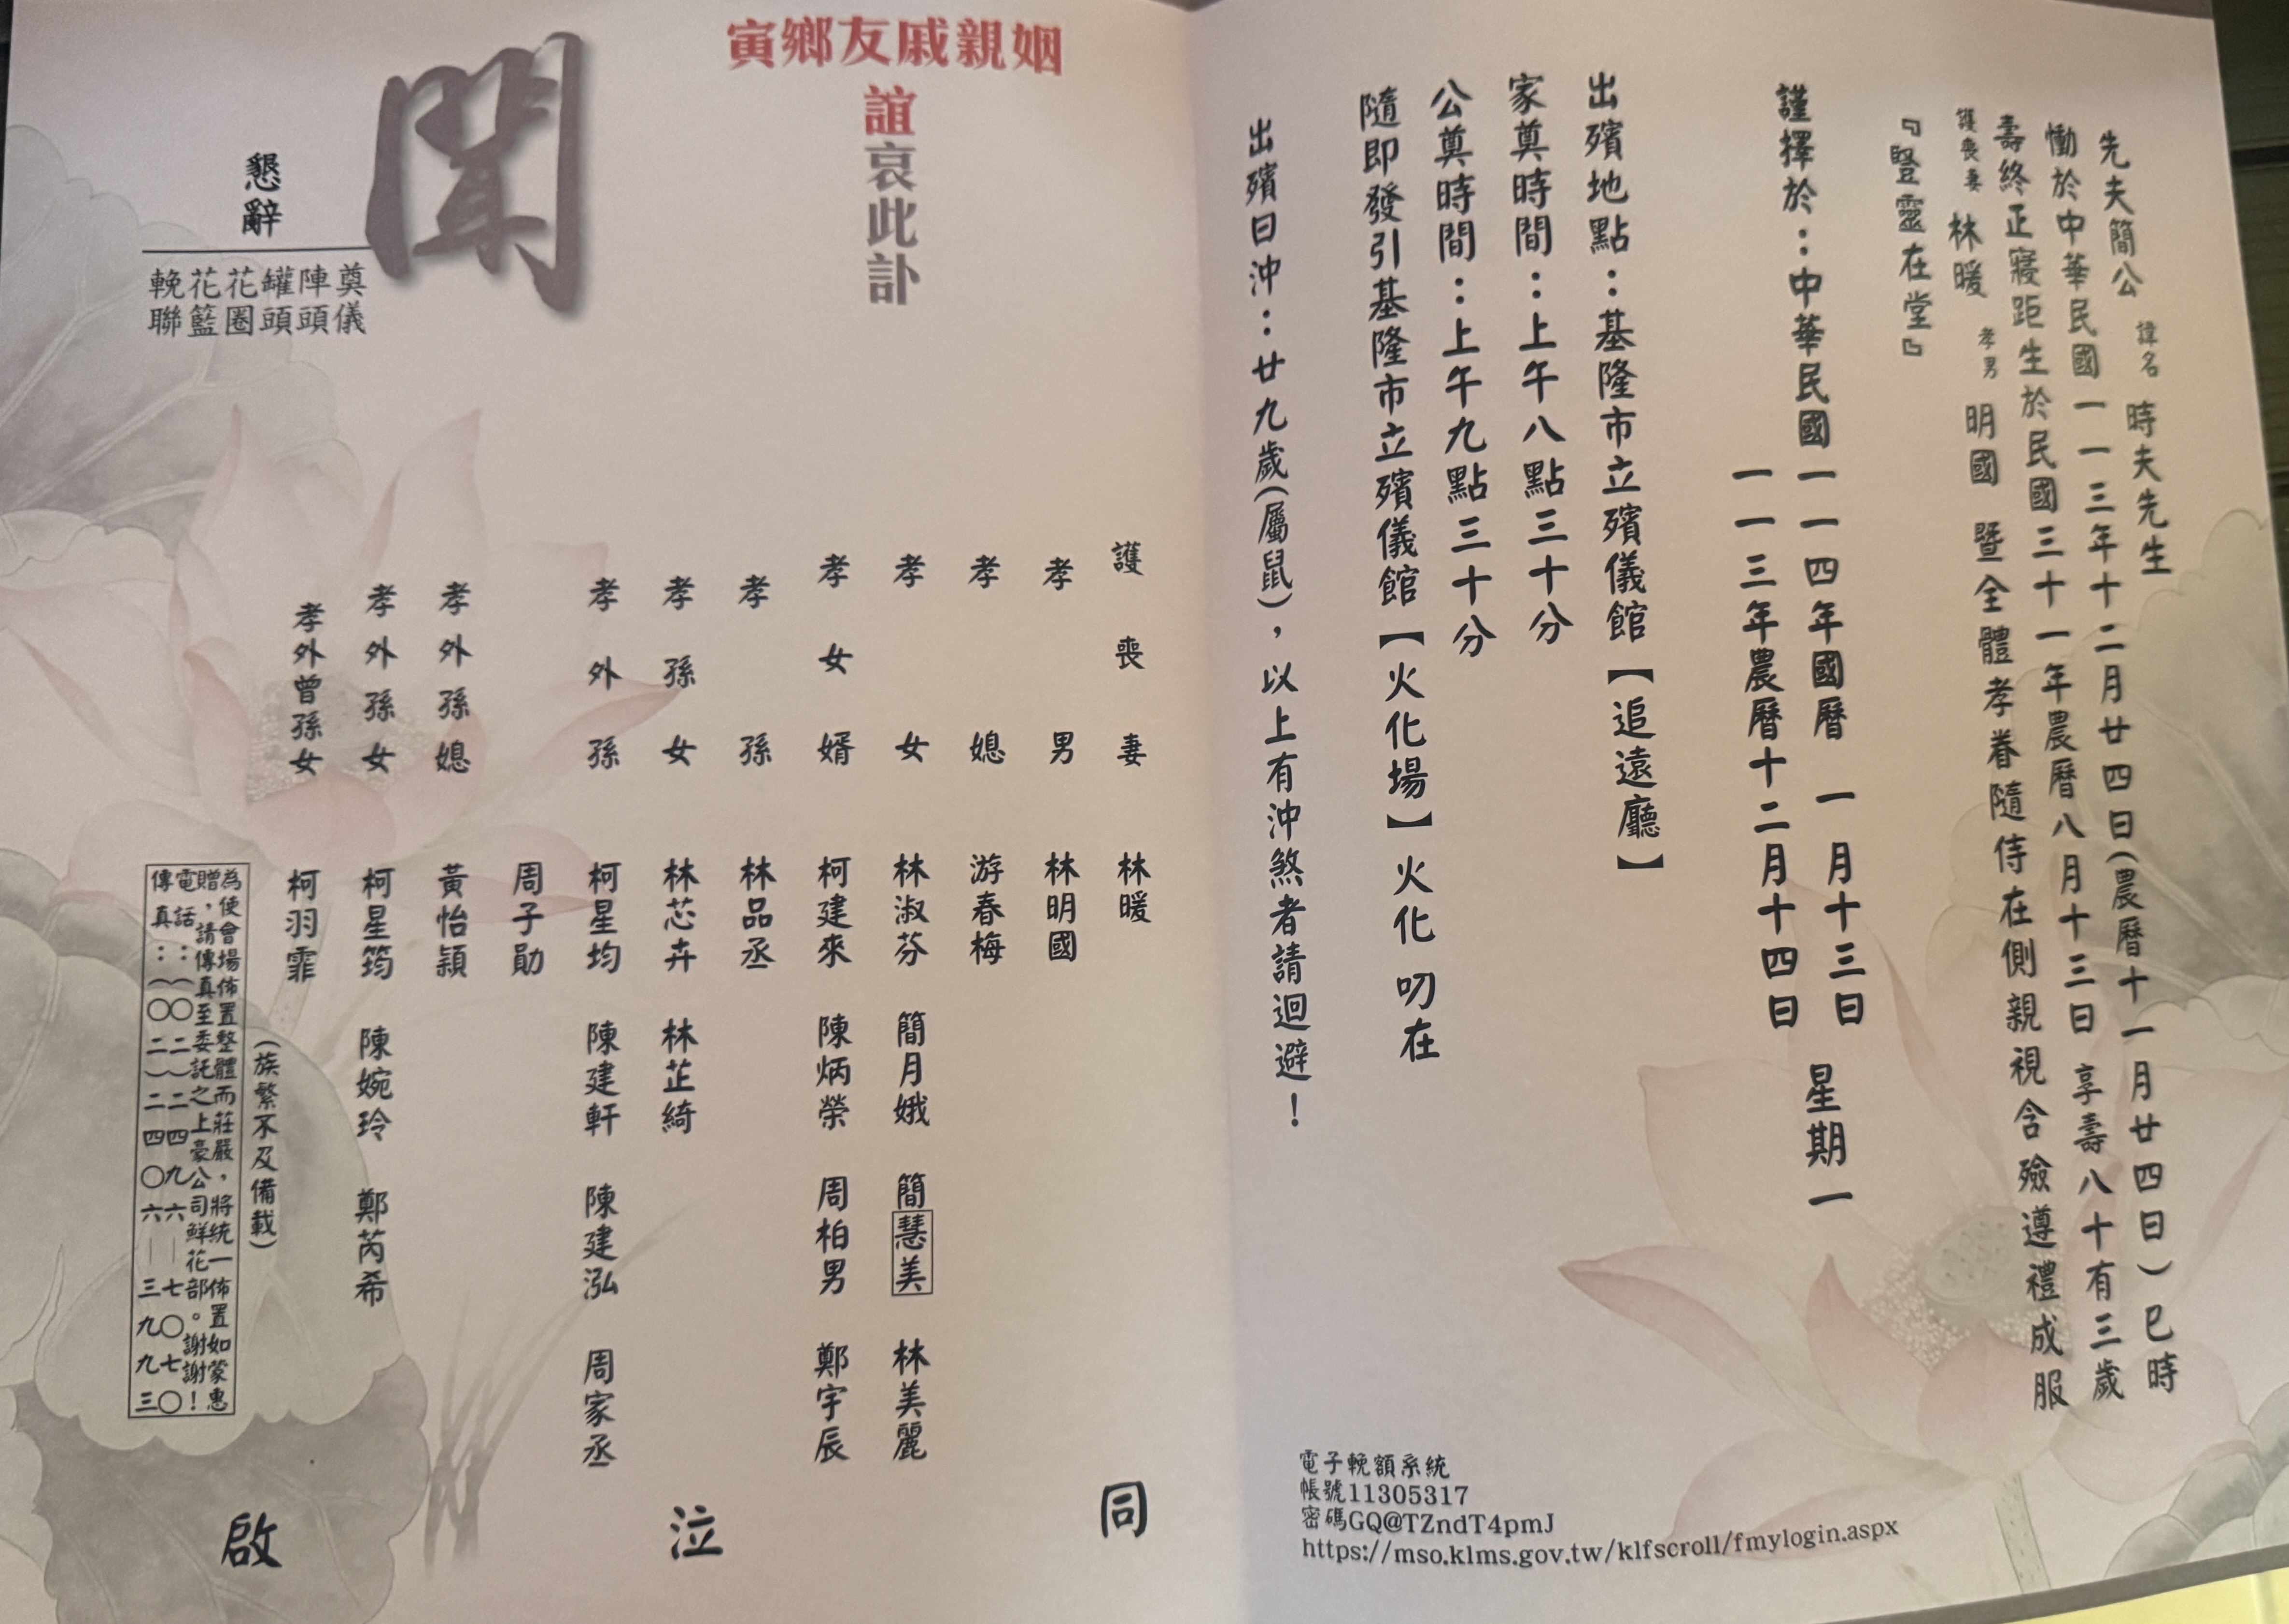 先夫簡公 諱名 時夫先生
慟於中華民國一一三年十二月廿四日(農曆十一月廿四日)巳時
壽終正寢距生於民國三十一年農曆八月十三日 享壽八十有三歲
護喪妻 林暖 孝男 明國 暨全體孝眷隨侍在側親視含殮遵禮成服
『豎靈在堂』
謹擇於：中華民國
一一四年國曆 一月十三日 星期一
一一三年農曆十二月十四日
出殯地點：基隆市立殯儀館【追遠廳】
家奠時間：上午八點三十分
公奠時間：上午九點三十分
隨即發引基隆市立殯儀館【火化場】火化 叨在
出殯日沖：廿九歲(屬鼠)，以上有沖煞者請迴避！
電子輓額系統
帳號11305317
密碼GQ@TZndT4pmJ
https://mso.klms.gov.tw/klfscroll/fmylogin.aspx
姻親戚友鄉寅
誼哀此訃
聞
懇辭
奠儀
陣頭
罐頭
花圈
花籃
輓聯
護喪妻 林暖
孝男 林明國
孝媳 游春梅
孝女 林淑芬 簡月娥 簡慧美 林美麗
孝女婿 柯建來 陳炳榮 周柏男 鄭宇辰
孝孫 林品丞
孝孫女 林芯卉 林芷綺
孝外孫 柯星均 陳建軒 陳建泓 周家丞
周子勛
孝外孫媳 黃怡穎
孝外孫女 柯星筠 陳婉玲 鄭芮希
孝外曾孫女 柯羽霏
(族繁不及備載)
同泣啟
為使會場佈置整體而莊嚴，將統一佈置如蒙惠
贈，請傳真至委託之上豪公司鮮花部。謝謝！
電話：(〇二)二四九六－七〇七〇
傳真：(〇二)二四〇六－三九九三